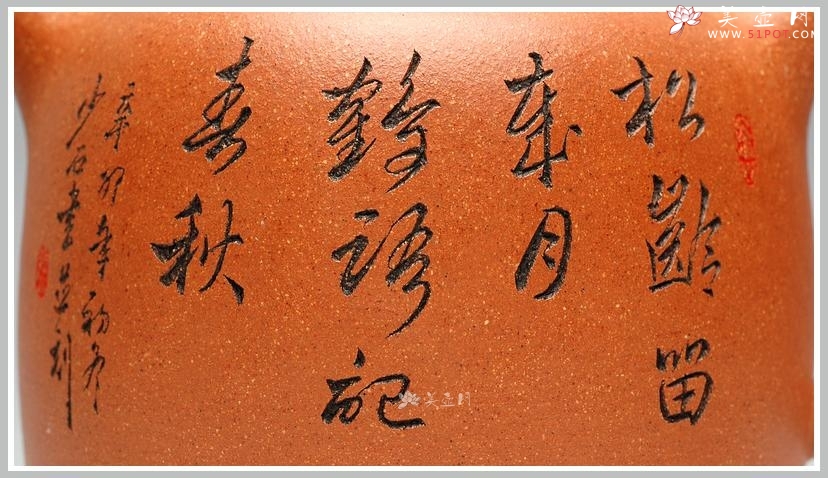 松齡留
歲月
鶴語記
春秋
辛卯年初冬
少石書并刻
美壶网
WWW.51POT.COM
美壶网